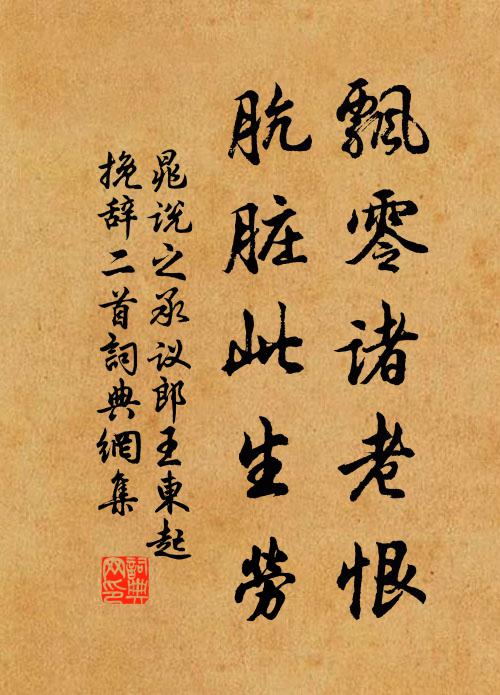 飘零诸老恨
肮脏此生劳
晁说之承议郎王東起
挽辞二首詞典網集
詞典网印